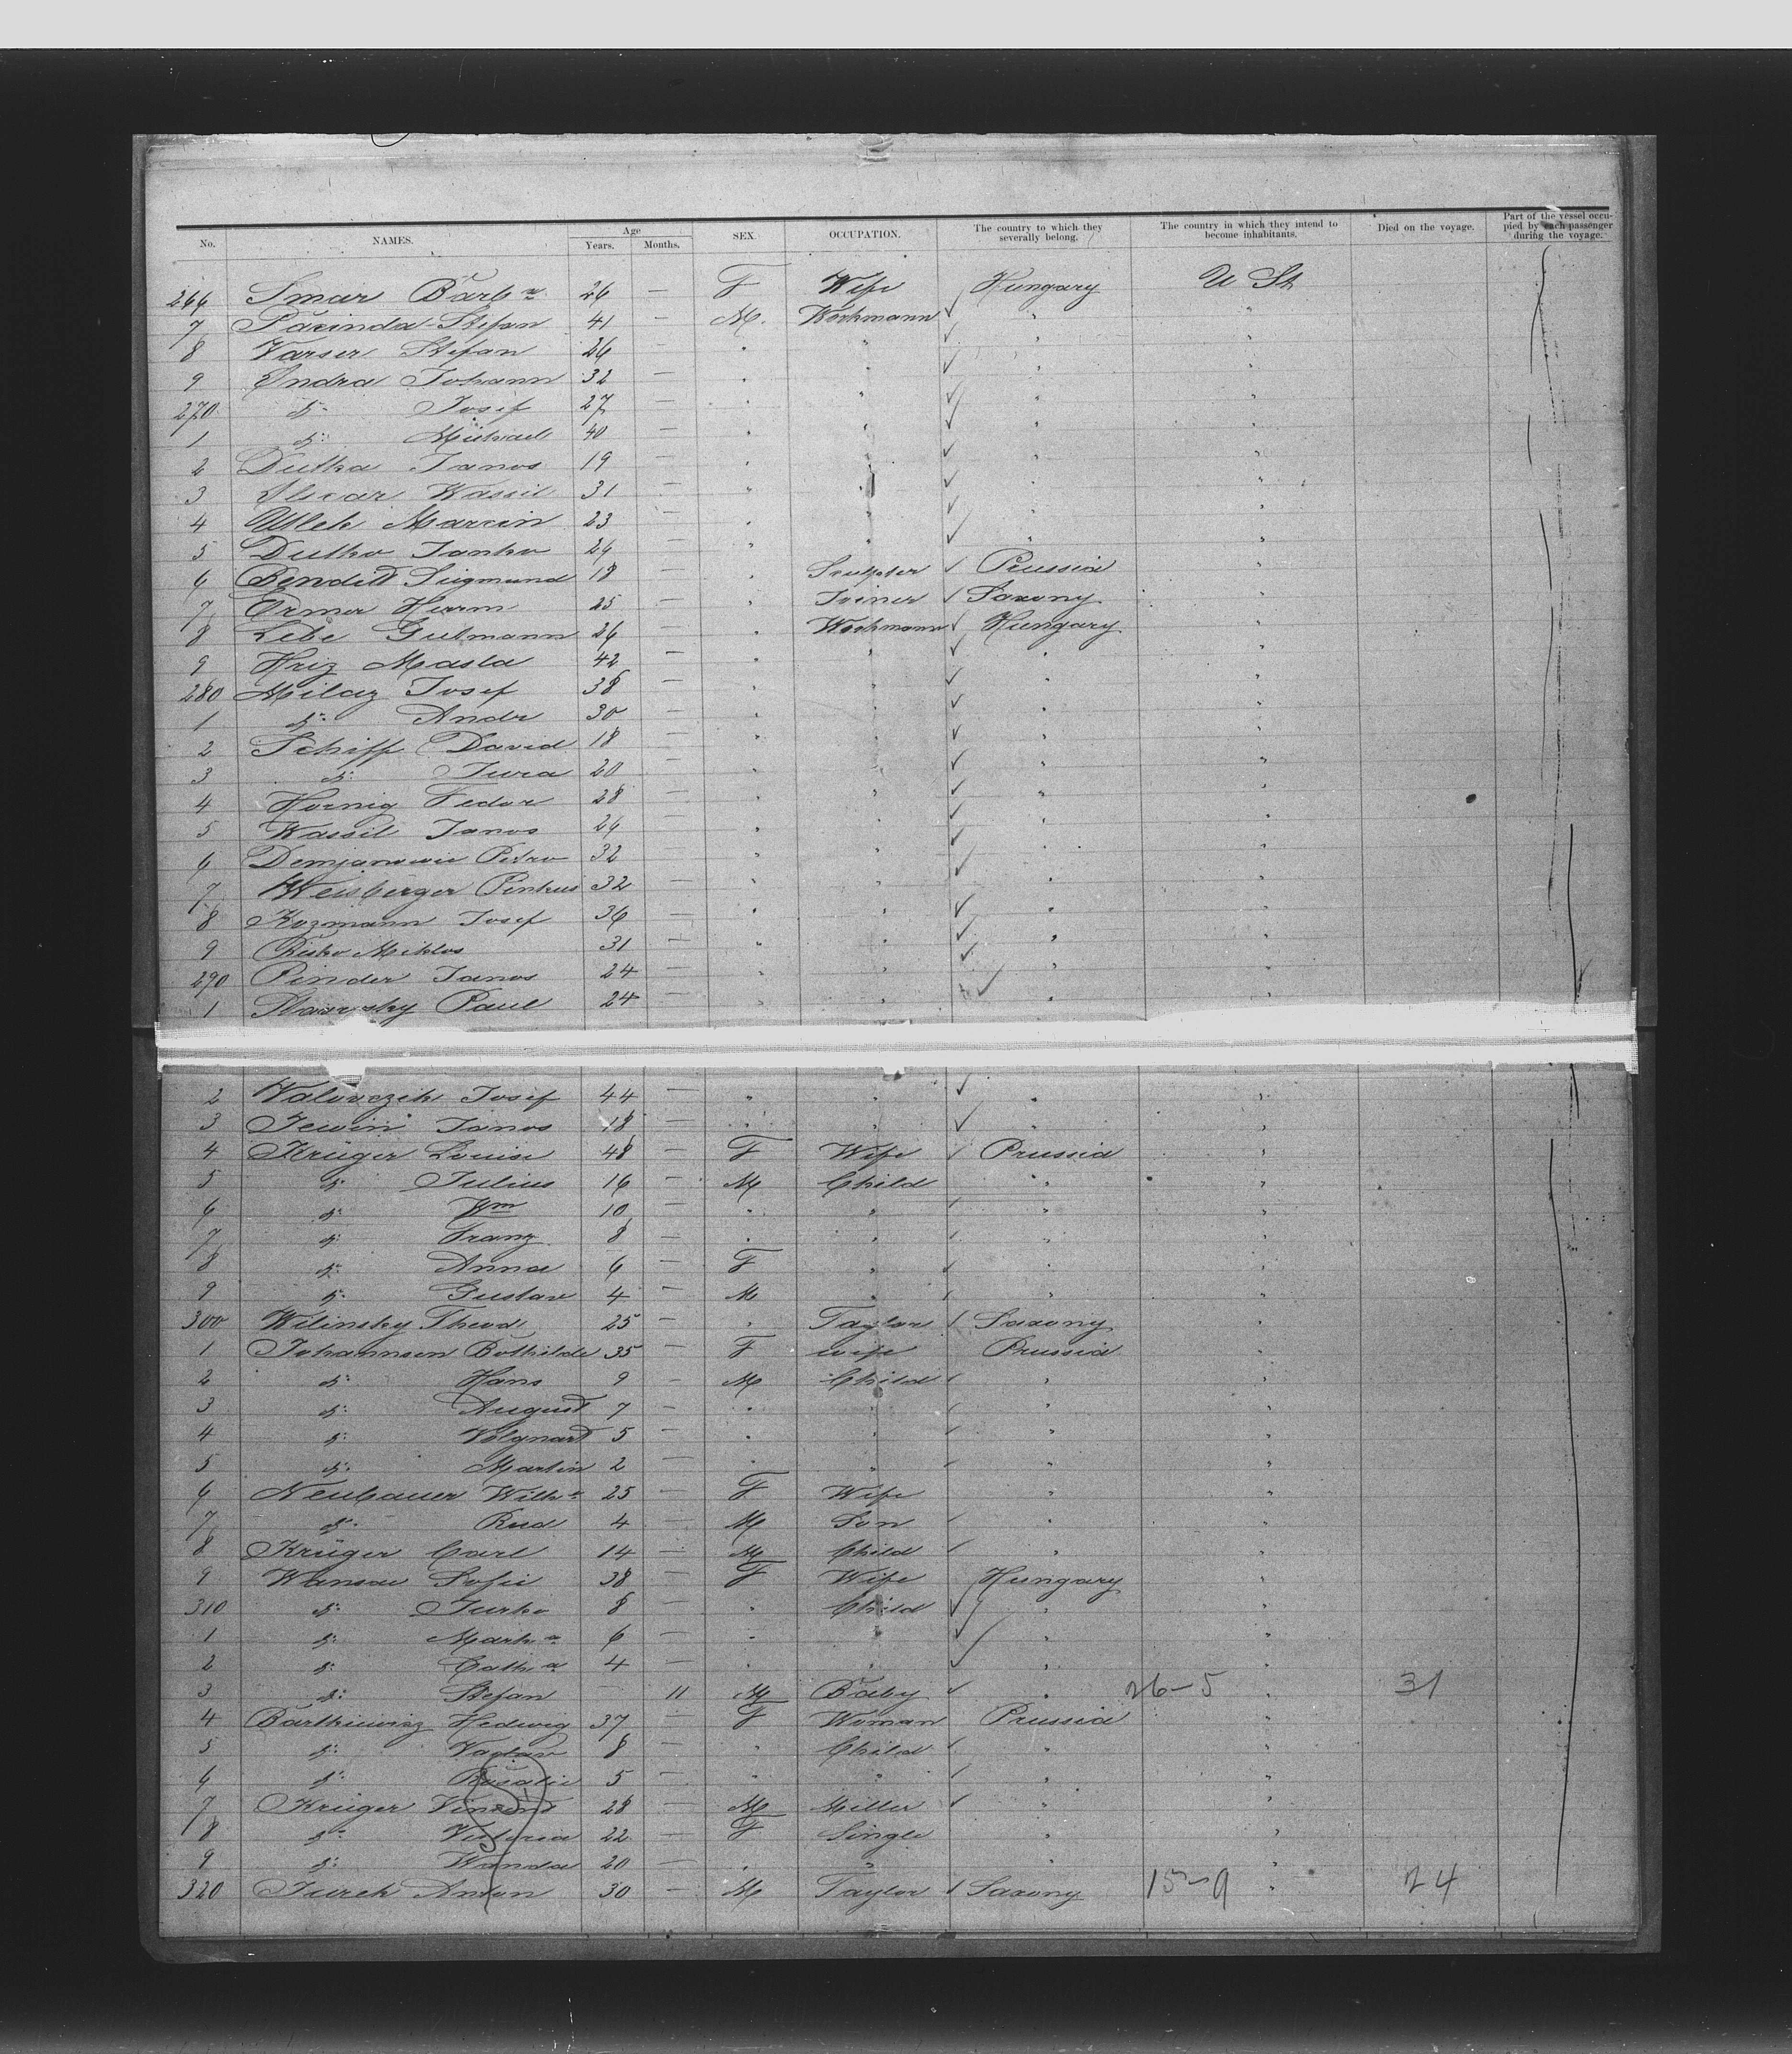 No. NAMES. Age Years. Months. SEX. OCCUPATION. The country to which they severally belong. The country in which they intend to become inhabitants. Died on the voyage. Part of the vessel occupied by each passenger during the voyage.
266 Smar Barb a 26 — F Wife Hungary U St
7 Pacinda Stefan 41 — M. Workmann " "
8 Varser Stefan 26 — " " " "
9 Indra Johann 32 — " " " "
270 do Josef 27 — " " " "
1 do Michael 40 — " " " "
2 Dutka Janos 19 — " " " "
3 Wassil 31 — " " " "
4 Marcin 23 — " " " "
5 Dutko Janko 24 — " " " "
6 Benditt Siegmund 18 — " Sculpter Prussia "
7 Ormer Herrm 25 — " Joiner Saxony "
8 Lebe Gutmann 26 — " Workmann Hungary "
9 Hriz Masla 42 — " " " "
280 Milaz Josef 38 — " " " "
1 do Andr 30 — " " " "
2 Schiff David 18 — " " " "
3 do Jura 20 — " " " "
4 Hornig Fedor 28 — " " " "
5 Wassil Janos 24 — " " " "
6 Petro 32 — " " " "
7 Weisberger Pinkus 32 — " " " "
8 Kozmann Josef 36 — " " " "
9 Risko Miklos 31 — " " " "
290 Pinder Janos 24 — " " " "
1 Paul 24 — " " " "
2 Walovczik Josef 44 — " " " "
3 Jewin Janos 18 — " " " "
4 Krüger Louise 48 — F Wife Prussia "
5 do Julius 16 — M Child " "
6 do Wm 10 — " " " "
7 do Franz 8 — " " " "
8 do Anna 6 — F " " "
9 do Gustav 4 — M " " "
300 Wilinsky Theod. 25 — " Taylor Saxony "
1 Johannsen Bothilde 35 — F wife Prussia "
2 do Hans 9 — M Child " "
3 do August 7 — " " " "
4 do Volgnart 5 — " " " "
5 do Martin 2 — " " " "
6 Neubauer Wilh e 25 — F Wife " "
7 do Rud 4 — M Son " "
8 Krüger Carl 14 — M Child " "
9 Wansac Sofie 38 — F Wife Hungary "
310 do Jurko 8 — " Child " "
1 do Marh a 6 — " " " "
2 do Cath a 4 — " " " "
3 do Stefan — 11 M Baby " 26-5 " 31
4 Barthiewicz Hedwig 37 — F Woman Prussia "
5 do Vaclav 8 — " Child " "
6 do Rosalie 5 — " " " "
7 Krüger Vincent 28 — M Miller " "
8 do Victoria 22 — F Single " "
9 do Wanda 20 — " " " "
320 Jurek Anton 30 — M Taylor Saxony 15-9 " 24